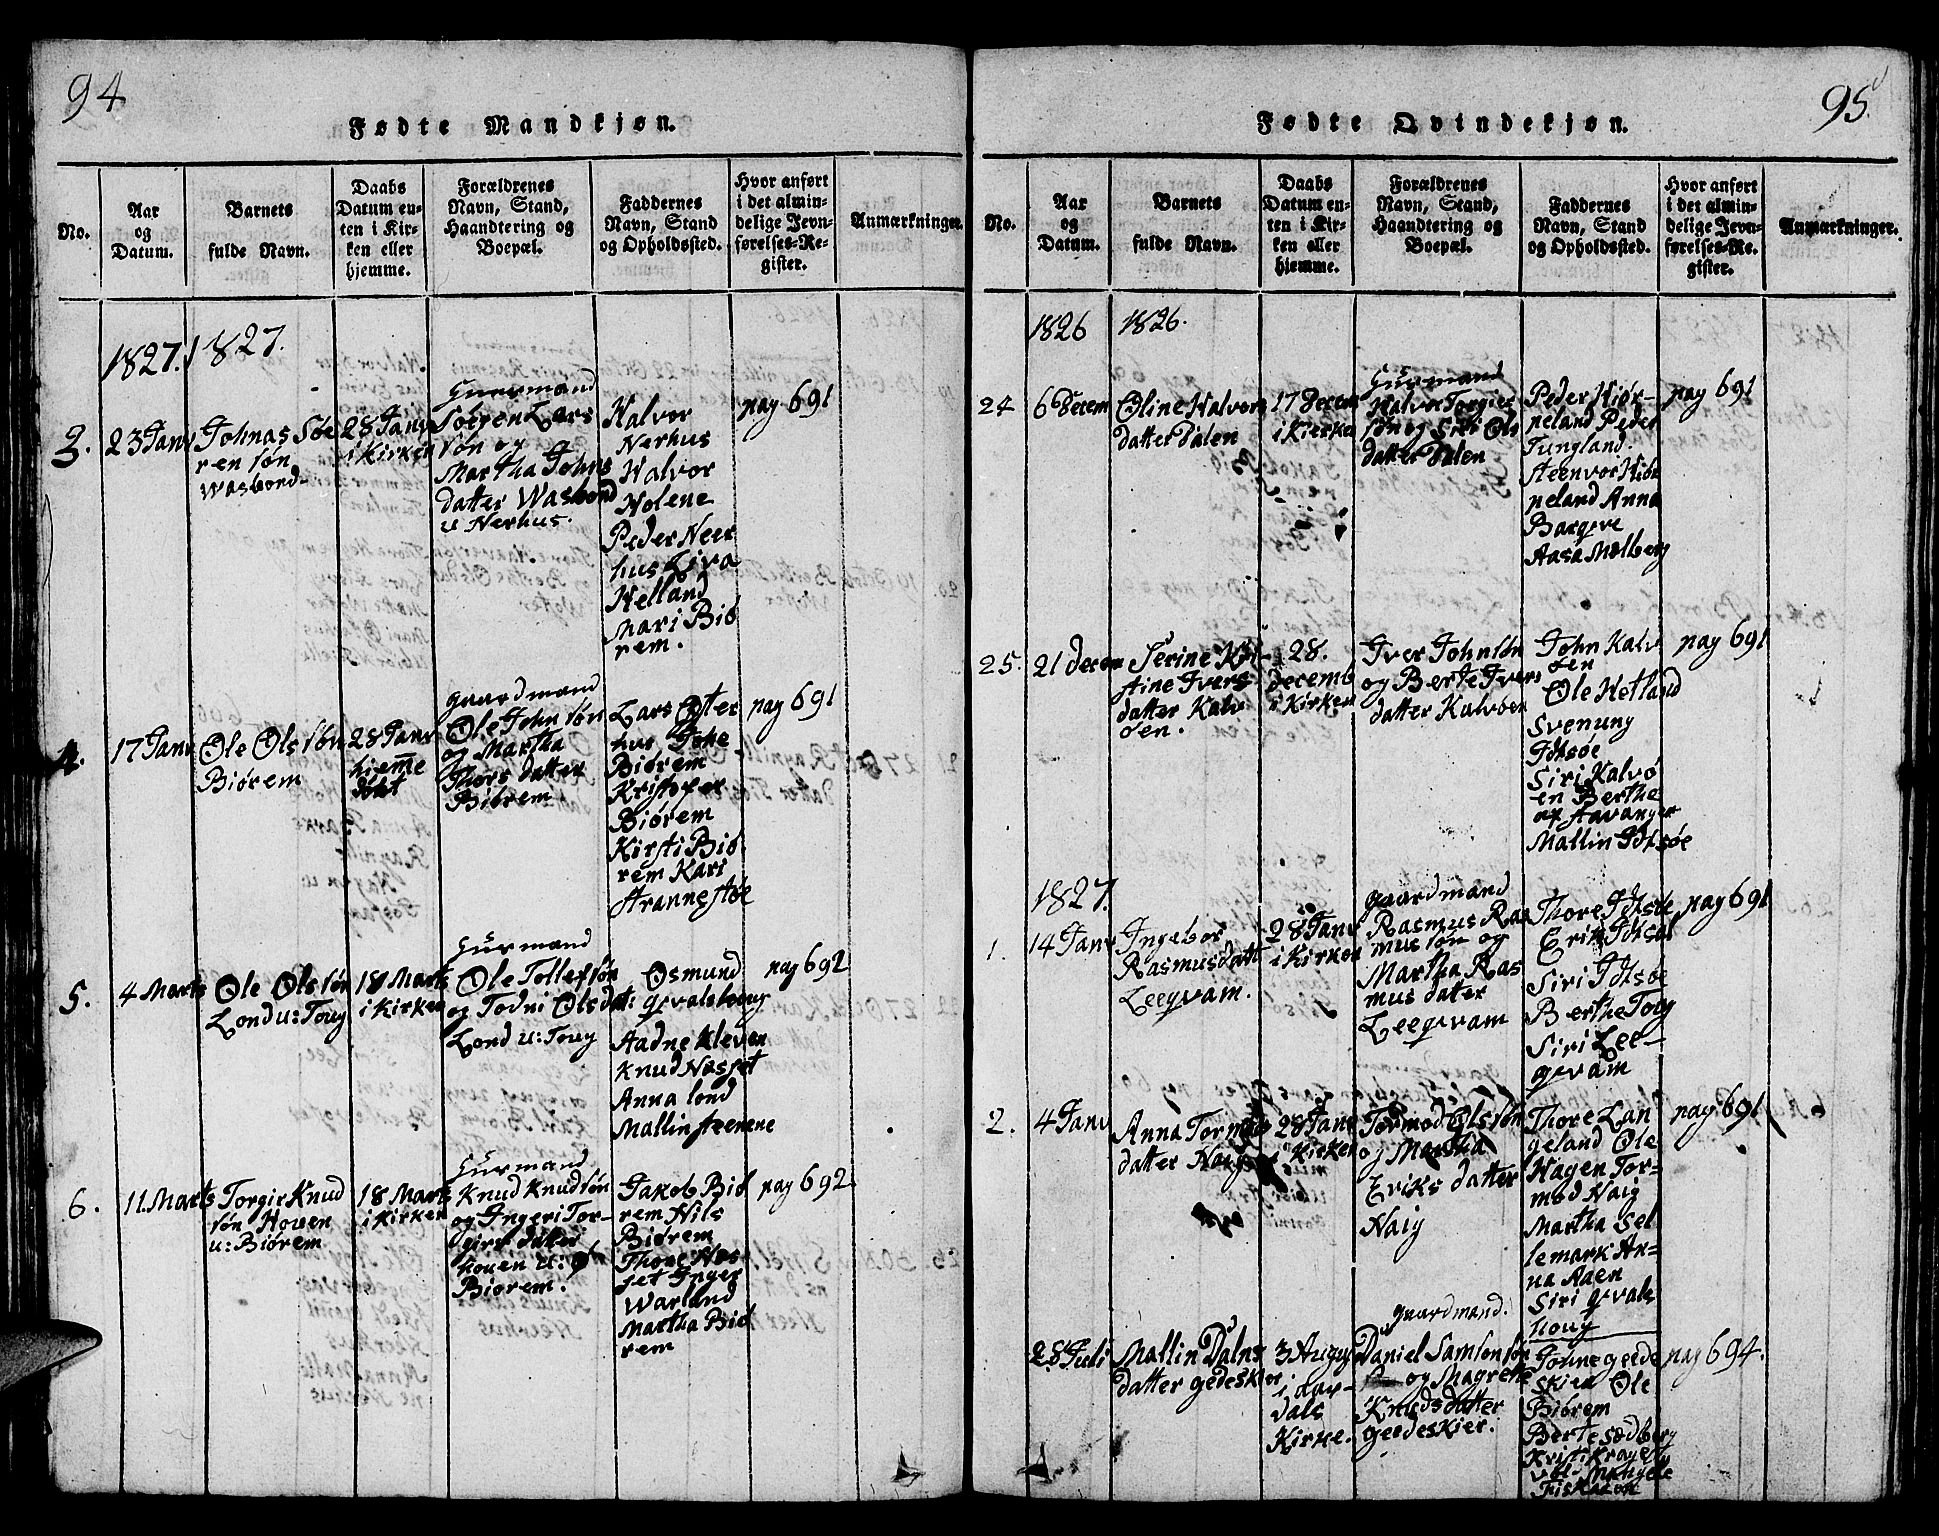 94
Fødte Mandkjøn.
No.
Aar
og
Datum.
Barnets
fulde Navn.
Daabs
Datum en-
ten i Kir-
ken eller
hjemme.
Forældrenes
Navn, Stand,
Haandtering og
Boepæl.
Faddernes
Navn, Stand
og Opholdssted.
Hvor anført
i det almin-
delige Jevn-
førelses-Re-
gister.
Anmærkninger.
1827. 1827.
3.
23 Janv
Johnas Søe
ren søn
Wasbond
28 Janv
i Kirken
Huusmand
Søeren Lars
søn og
Martha Johns
datter Wasbond
u Nerhus.
Halvor
Nerhus
Halvor
Holene
Peder Neer
hus Siva
Helland
Mari Biø
rem.
pag 691
4.
17 Janv
Ole Ols søn
Biørem
28 Janv
hieme
døbt
gaardmand
Ole John søn
og Martha
Thors datter
Biørem
Lars Øster
hus Toke
Biørem
Kristofer
Biørem
Kirsti Biø
rem Kari
Strannestøe
pag 691
5.
4 Marts
Ole Ols søn
Lond u: Toug
18 Marts
i Kirken
Huusmand
Ole Tollefsøn
og Todni Olsdat:
Lond u: Toug
Osmund
qvalshoug
Aadne Kleven
Knud Nesset
Anna Lond
Mallin steenene
pag 692
6.
11. Marts
Torgir Knud
søn Houen
u: Biørem
18 Marts
i Kirken
Huusmand
Knud Knudsøn
og Ingeri Tor-
girs datter
houen u:
Biørem.
Jakob Biø
rem Nils
Biørem
Thore Nes
set Inger
Warland
Martha Biø
rem
pag 692
95
Fødte Qvindekjøn.
No.
Aar
og
Datum.
Barnets
fulde Navn.
Daabs
Datum en-
ten i Kir-
ken eller
hjemme.
Forældrenes
Navn, Stand,
Haandtering og
Boepæl.
Faddernes
Navn, Stand
og Opholdssted.
Hvor anført
i det almin-
delige Jevn-
førelses-Re-
gister.
Anmærkninger.
1826 1826.
24
6 Decem
Oline Halvors
datter Dalen
17 Decem
i Kirken
Huusmand
Halvor Torgies
søn og Siri Ols
datter Dalen
Peder Hiør-
peland Peder
Tungland.
Steenvor Hiør
peland Anna
Bargve
Aasa Molberg
pag 691
25.
21 Decem
Serine Kri-
stine Ivers
datter Kalv
øen.
28.
decemb
i Kirken
Iver Johnsøn
og Berte Ivers
datter Kalvøen
John Kalv
øen
Ole Hetland
Svenung
Idsøe
Siri Kalvø
en Berthe
af Stavanger
Mallin Idsøe
pag 691
1827.
1.
14 Janv
Ingebor
Rasmusdatt
Leeqvam.
28 Janv
i Kirken
gaardmand
Rasmus Ras
mus søn og
Martha Ras
mus datter
Leeqvam
Thore Idsøe
Erik Idsøe
Siri Idsøe
Berthe Toug
Siri Lee-
qvam
pag 691
2.
4 Janv
Anna Tormods
datter Naig
28 Janv
i Kirken
Tormod Olssøn
og Martha
Eriks datter
Naig
Thore Lan
geland Ole
Hagen Tor-
mod Naig
Martha Sel
lemark An-
na Aaen
Siri qvals
houg
pag 691
28 Juli
Mallin Dalns
datter gedeskier
3 Augu
i aar-
dals
Kirke.
gaardmand.
Daniel Samson søn
og Magrete
Knudsdatter
geedeskier.
Johne geede
skier Ole
Biørem
Berte Sedberg
Kristi Kragely
pag 694.